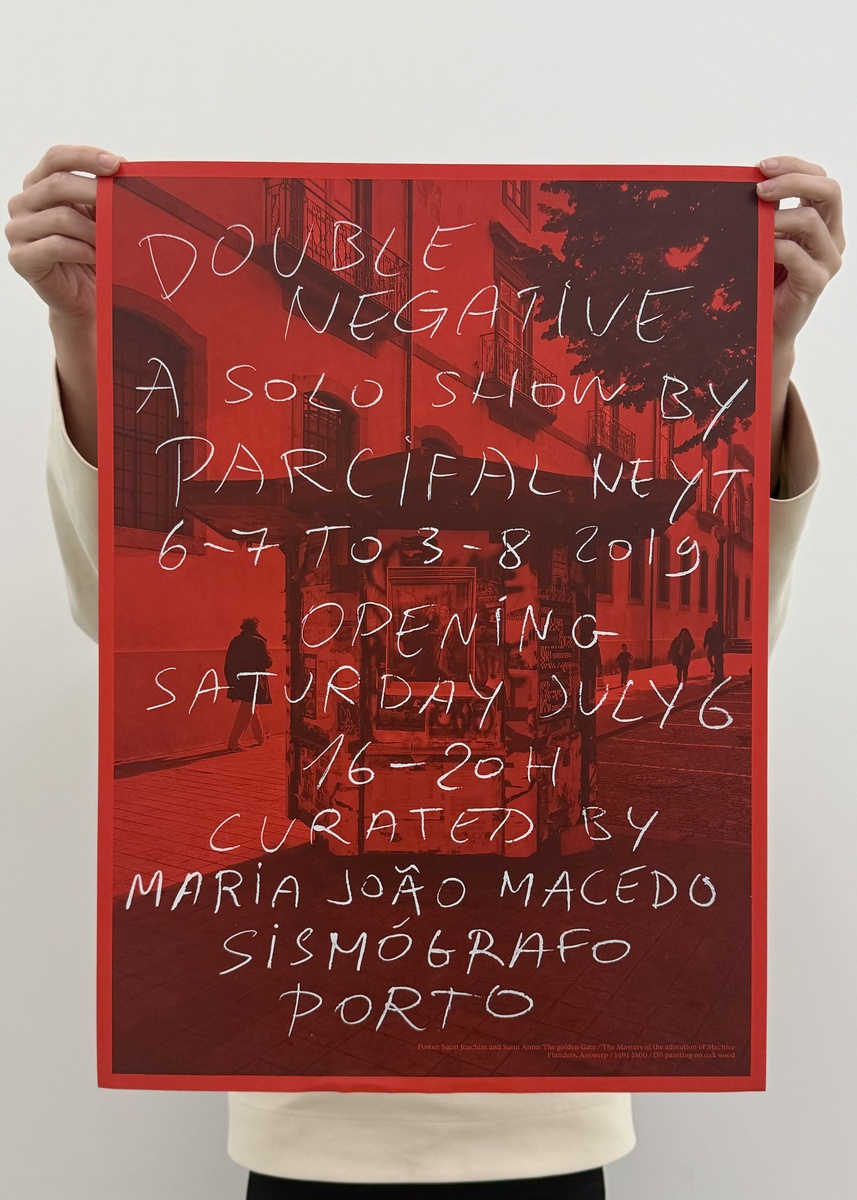 DOUBLE
NEGATIVE
A SOLO SHOW BY
PARCIFAL NEYT
6-7 TO 3-8 2019
OPENING
SATURDAY JULY 6
16-20H
CURATED BY
MARIA JOÃO MACEDO
SISMÓGRAFO
PORTO
Poster: Saint Joachim and Saint Anne: The golden Gate / The Masters of the adoration of Machico
Flanders, Antwerp / 1491-1500 / Oil painting on oak wood